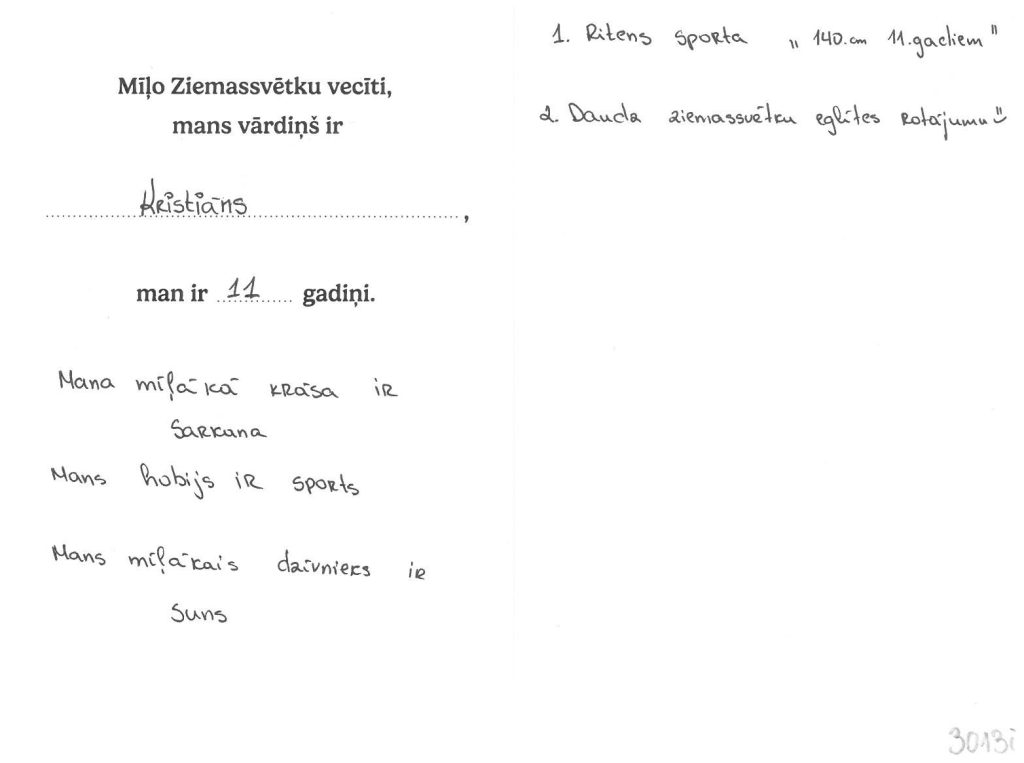 Mīļo Ziemassvētku vecīti,
mans vārdiņš ir
Kristiāns,
man ir 11 gadiņi.
Mana mīļākā krāsa ir
Sarkana
Mans hobijs ir sports
Mans mīļākais dzīvnieks ir
Suns
1. Ritens sporta „140.cm 11.gadiem"
2. Daudz ziemassvētku eglītes rotājumu
3013i